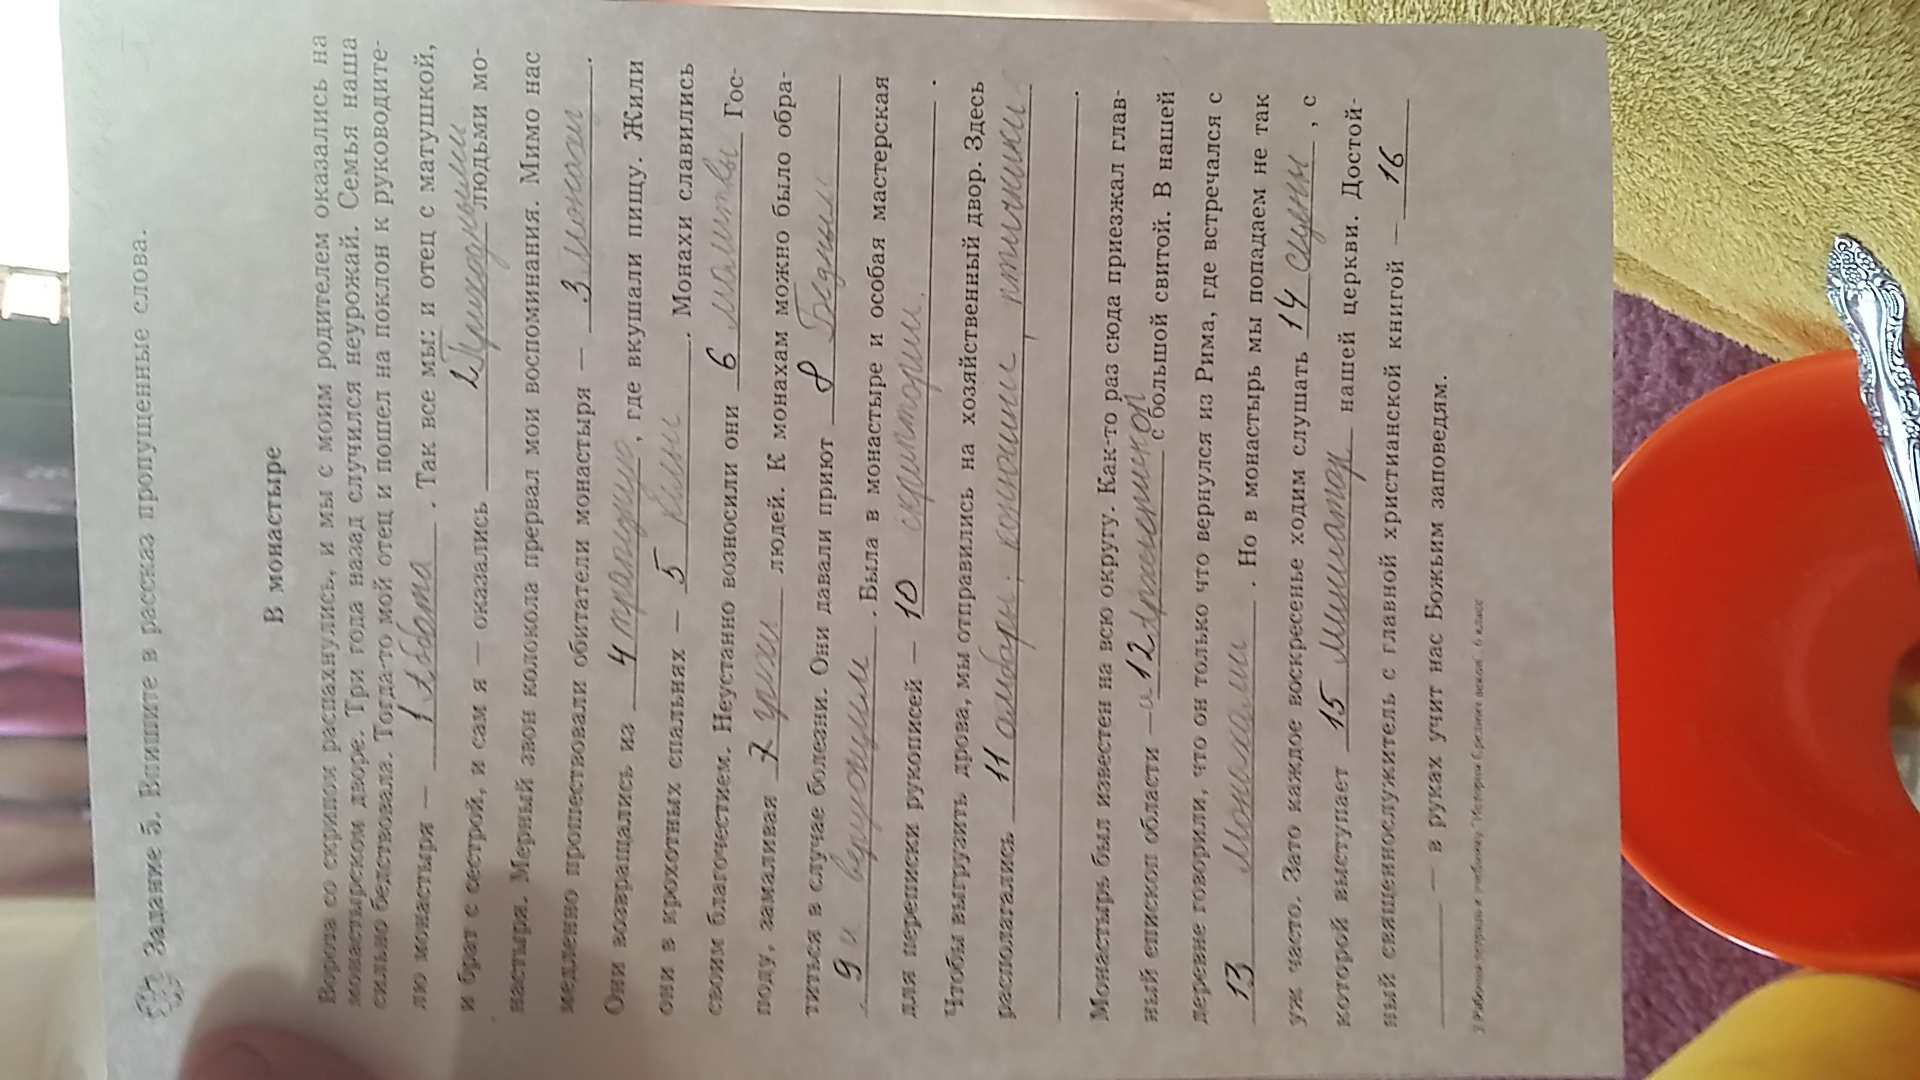 Задание 5. Впишите в рассказ пропущенные слова.
В монастыре
Ворота со скрипом распахнулись, и мы с моим родителем оказались на
монастырском дворе. Три года назад случился неурожай. Семья наша
сильно бедствовала. Тогда-то мой отец и пошел на поклон к руководите-
лю монастыря – 1 аббата . Так все мы: и отец с матушкой,
и брат с сестрой, и сам я – оказались 2 людьми мо-
настыря. Мерный звон колокола прервал мои воспоминания. Мимо нас
медленно прошествовали обитатели монастыря – 3 монахи .
Они возвращались из 4 трапезную , где вкушали пищу. Жили
они в крохотных спальнях – 5 кельи . Монахи славились
своим благочестием. Неустанно возносили они 6 малитвы Гос-
поду, замаливая 7 грехи людей. К монахам можно было обра-
титься в случае болезни. Они давали приют 8 Бедные
9 и верующим . Была в монастыре и особая мастерская
для переписки рукописей – 10 скриптории .
Чтобы выгрузить дрова, мы отправились на хозяйственный двор. Здесь
располагались 11 амбары, конюшни, птичники
.
Монастырь был известен на всю округу. Как-то раз сюда приезжал глав-
ный епископ области – 12 архиепископ с большой свитой. В нашей
деревне говорили, что он только что вернулся из Рима, где встречался с
13 монахами . Но в монастырь мы попадаем не так
уж часто. Зато каждое воскресенье ходим слушать 14 , с
которой выступает 15 нашей церкви. Достой-
ный священнослужитель с главной христианской книгой – 16
– в руках учит нас Божьим заповедям.
2 Рабочая тетрадь к учебнику "История Средних веков". 6 класс